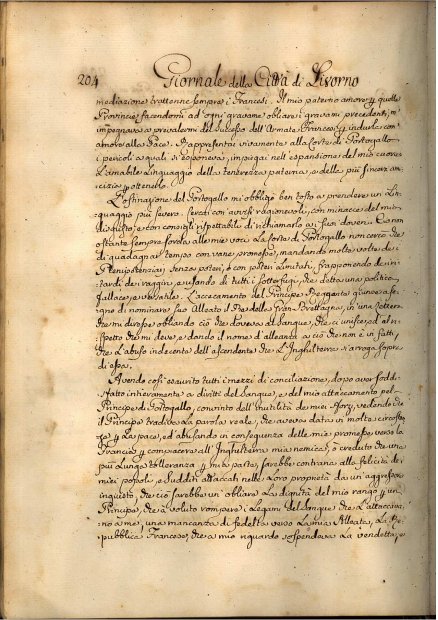 204 Giornale della Città di Livorno
mediazione trattenne sempre i Francesi. Il mio paterno amore p quelle
Provincie facendomi ad ogni gravame obliare i gravami precedenti, m'
impegnava a prevalermi del successo dell'Armata Francese p indurle con
amore alla Pace. Rappresentai vivamente alla Corte di Portogallo
i pericoli a quali si esponeva, impiegai nell'espansione del mio cuore
l'amabile linguaggio della tenerezza paterna, e della più sincera am
icizia p ottenerlo.
L'ostinazione del Portogallo mi obbligò ben tosto a prendere un Lin
guaggio più severo. Cercai con avvisi ragionevoli, con minacce del mio
disgusto, e con consigli rispettabili di richiamarlo a i suoi doveri. Ciò non
ostante sempre sorda alle mie voci la Corte di Portogallo non cercò che
di guadagnar tempo con vane promesse, mandando molte volte dei
Plenipotenziari senza poteri, o con poteri limitati, frapponendo de ri
tardi, de raggiri, e usando di tutti i sotterfugi, che detta una politica
fallace, e versatile. L'accecamento del Principe Reggente giunse a se
gno di nominare suo Alleato il Re della Gran Brettagna, in una lettera
che mi diresse obliando ciò che doveva al sangue, che ci unisce, ed al ri
spetto che mi deve, e dando il nome d'alleanza a ciò che non è in fatti,
che l'abuso indecente dell'ascendente che l'Inghilterra si arroga sopra
di essa.
Avendo così esaurito tutti i mezzi di conciliazione, dopo aver soddi
sfatto intieramente a diritti del sangue, e del mio attaccamento pel
Principe di Portogallo, convinto dell'inutilità de miei sforzi, vedendo che
il Principe tradiva la parola reale, che aveva data in molte circosta
ze p la pace, ed abusando in conseguenza delle mie promesse verso la
Francia p compiacere all'Inghilterra mia nemica, ò creduto che una
più lunga tolleranza p mia parte, sarebbe contraria alla felicità de i
miei popoli, e sudditi attaccati nelle loro proprietà da un'aggressore
ingiusto, che ciò sarebbe un obliare la dignità del mio rango p un
Principe, che à voluto rompere i legami del sangue che l'attacciava
no a me, una mancanza di fedeltà verso la mia Alleata, la Re
pubblica Francese, che a mio riguardo sospendeva la vendetta, e